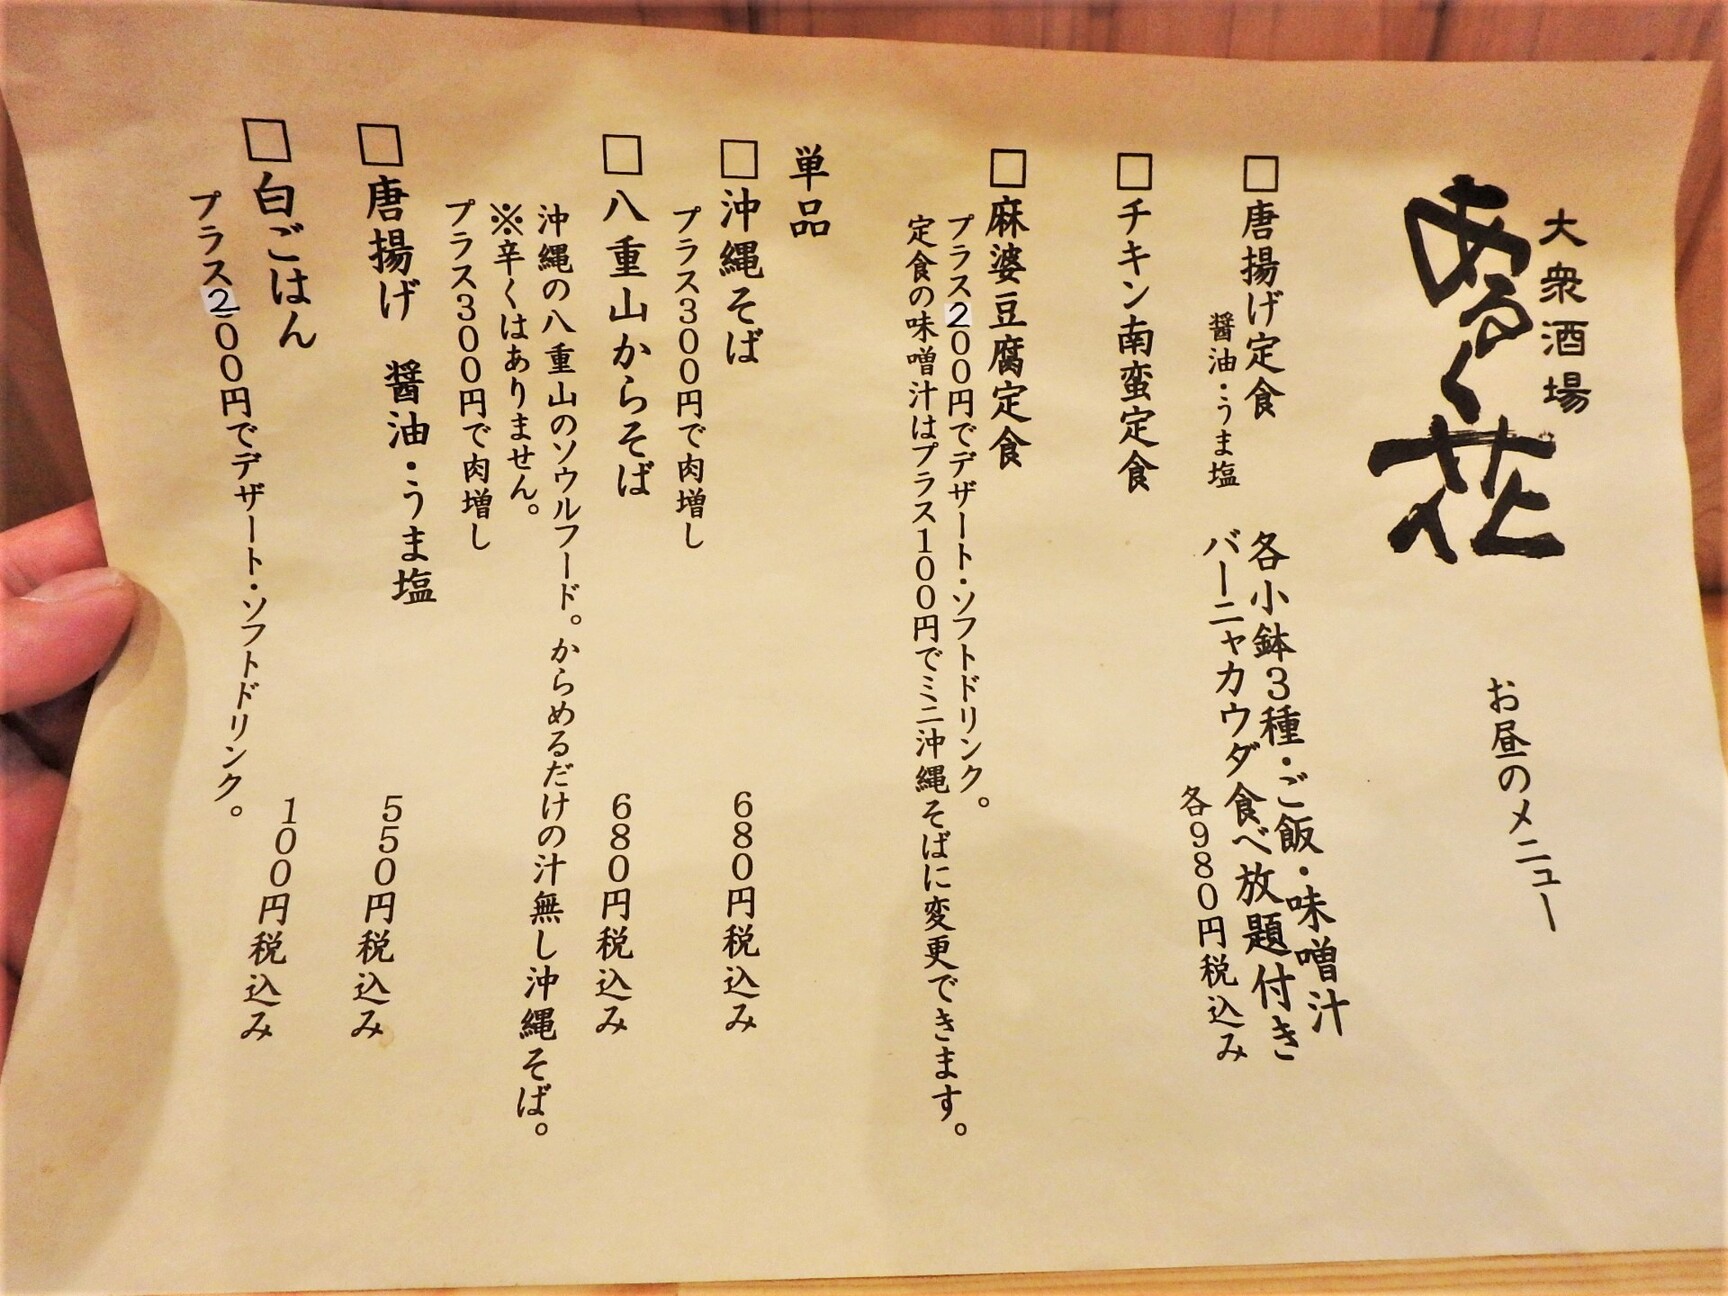 大衆酒場
あるく花
お昼のメニュー
各小鉢3種・ご飯・味噌汁
バーニャカウダ食べ放題付き
各980円税込み
□唐揚げ定食
醤油・うま塩
□チキン南蛮定食
□麻婆豆腐定食
プラス200円でデザート・ソフトドリンク。
定食の味噌汁はプラス100円でミニ沖縄そばに変更できます。
単品
□沖縄そば 680円税込み
プラス300円で肉増し
□八重山からそば 680円税込み
沖縄の八重山のソウルフード。からめるだけの汁無し沖縄そば。
※辛くはありません。
プラス300円で肉増し
□唐揚げ 醤油・うま塩 550円税込み
□白ごはん 100円税込み
プラス200円でデザート・ソフトドリンク。